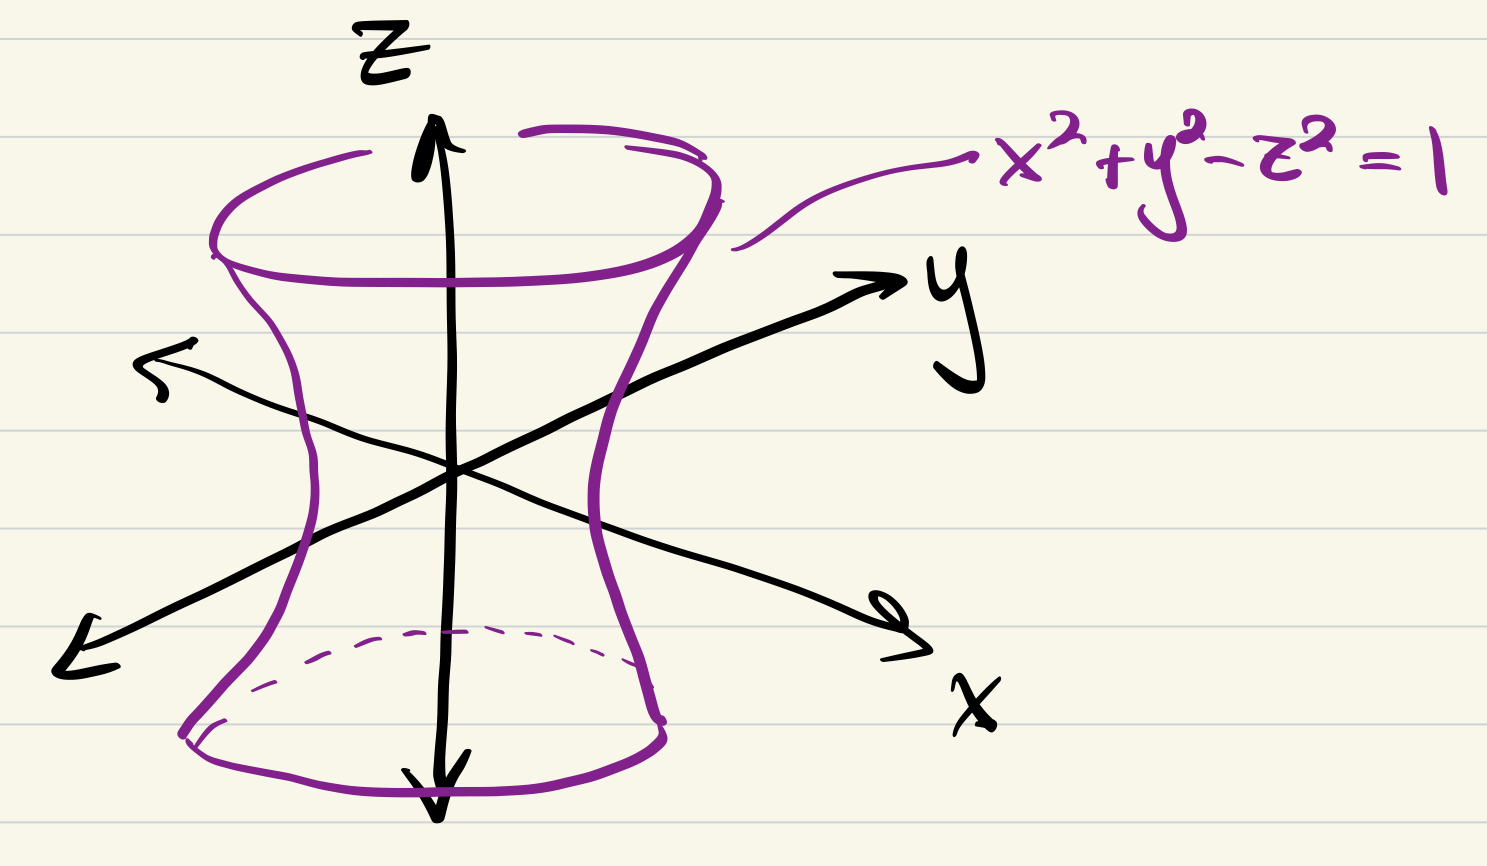 z
x² + y² - z² = 1
y
x